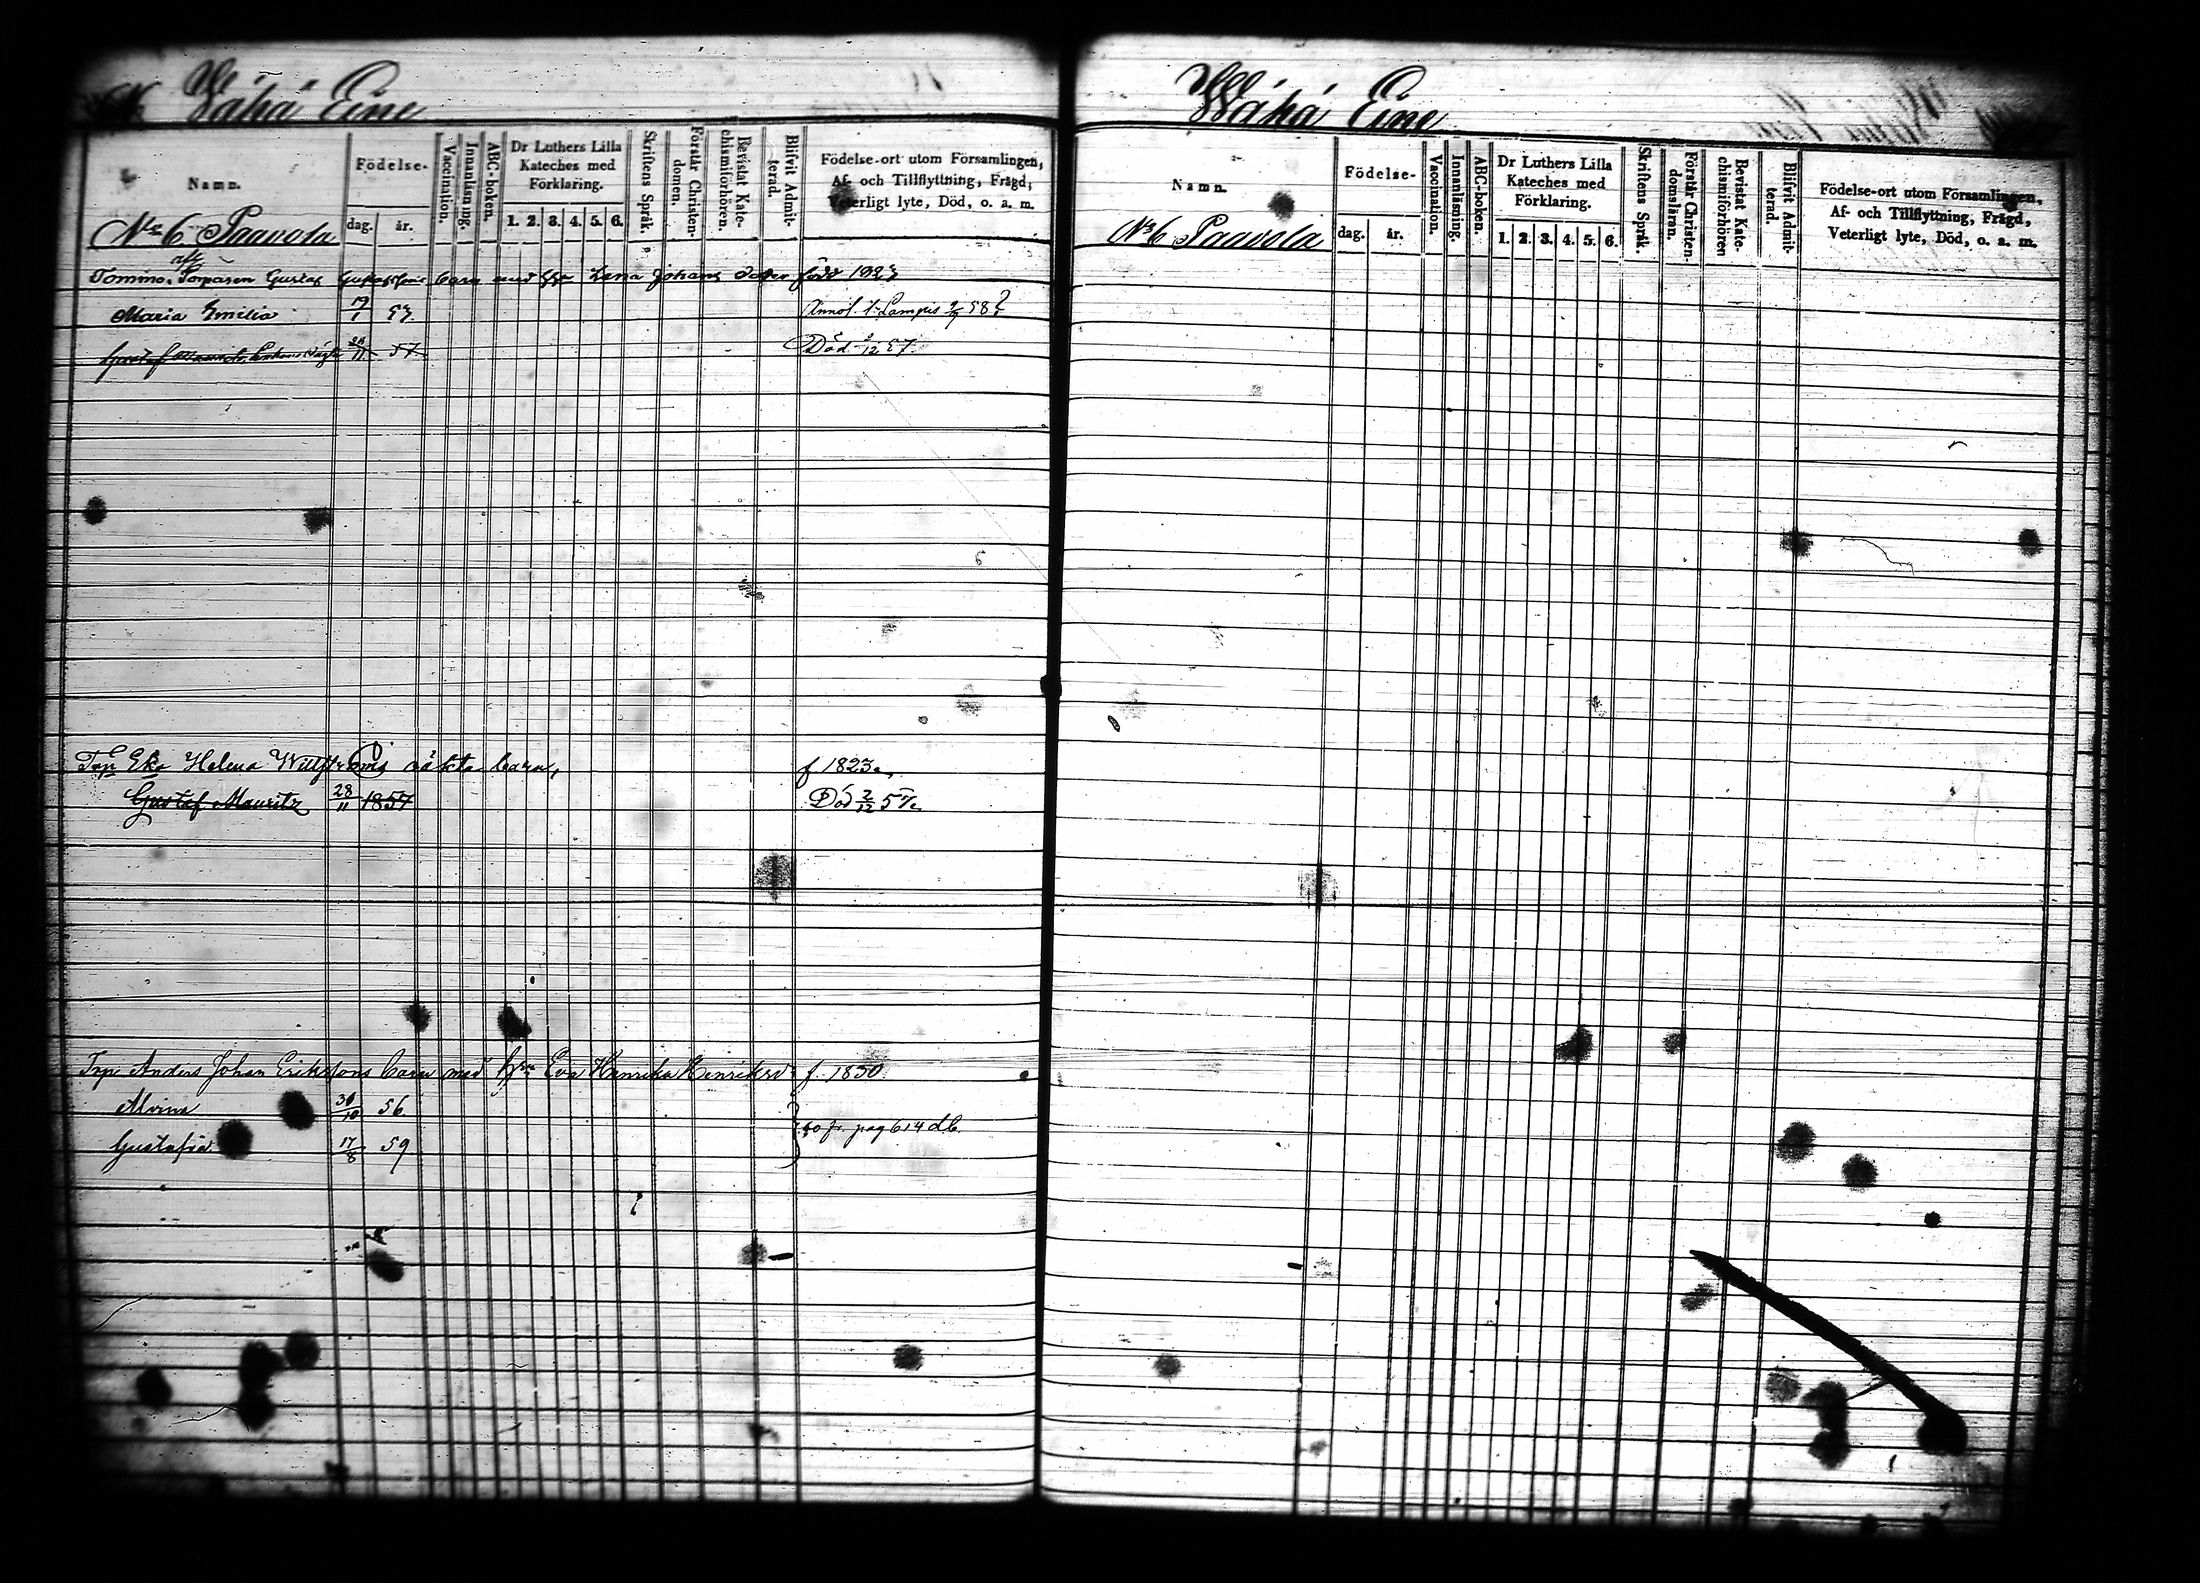 Wähä Eine
Namn.
Födelse-
dag.
år.
Vaccination.
Innanläsning.
ABC-boken.
Dr Luthers Lilla
Kateches med
Förklaring.
1. 2. 3. 4. 5. 6.
Skriftens Språk.
Förstår Christen-
domen.
Bevistat Kate-
chismiförhören.
Blifvit Admit-
terad.
Födelse-ort utom Församlingen,
Af- och Tillflyttning, Frägd,
Veterligt lyte, Död, o. a. m.
No 6 Paavola
afl
Torparen Gustaf barn med Lena Johans dotter född
Maria Emilia 19/1 Lampis 58
Gustaf 28/11 57 Död 2/12 57.
Torp Eka Helena oäkta barn, f 1823.
Gustaf Mauritz 28/11 1857 Död 2/12 57.
Torp Anders Johan Eriksons barn med Eva Henrika Henriksd f. 1830.
Alvina 30/10 56
fr. pag 614 db.
Gustafva 17/8 59
Wähä Eine
Namn.
Födelse-
dag.
år.
Vaccination.
Innanläsning.
ABC-boken.
Dr Luthers Lilla
Kateches med
Förklaring.
1. 2. 3. 4. 5. 6.
Skriftens Språk.
Förstår Christen-
domsläran.
Bevistat Kate-
chismiförhören
Blifvit Admit-
terad.
Födelse-ort utom Församlingen,
Af- och Tillflyttning, Frägd,
Veterligt lyte, Död, o. a. m.
No 6 Paavola